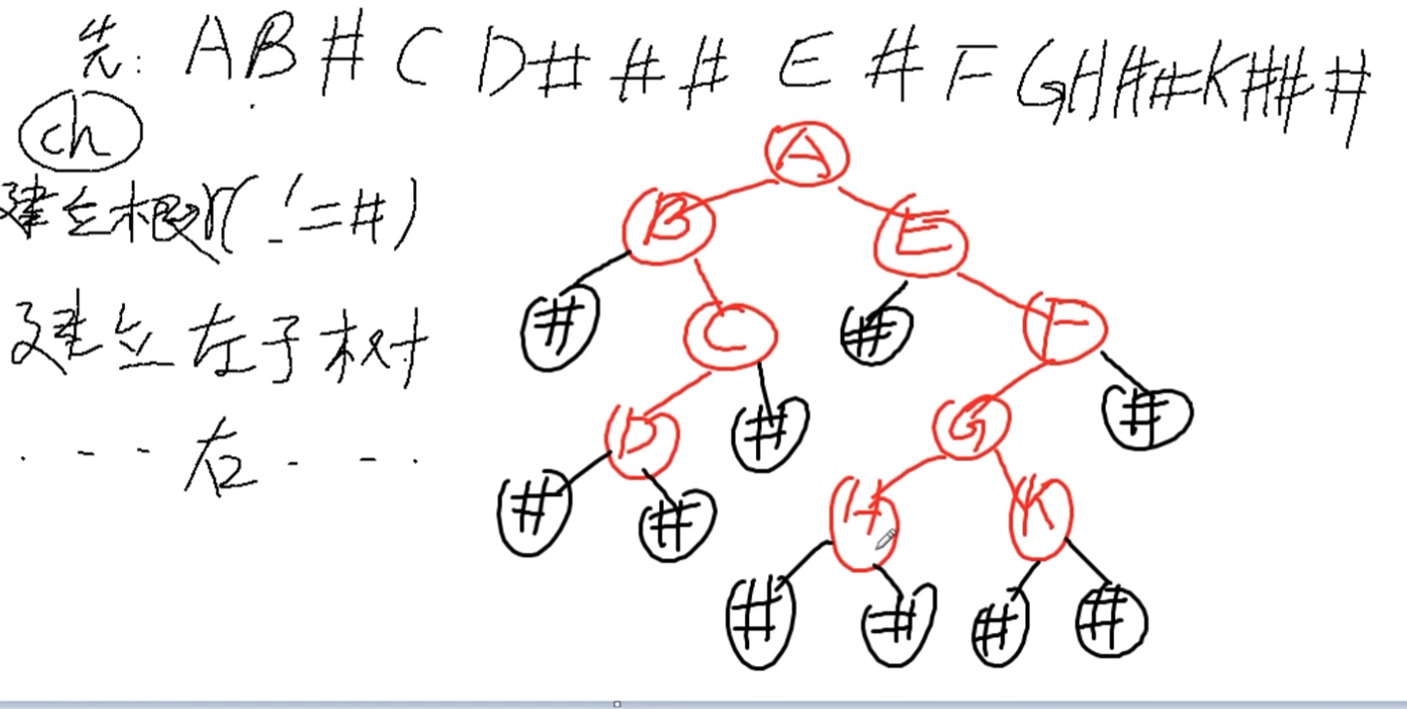 先: AB#CD###E#FGH##K###
ch
建立根(!=#)
建立左子树
. - - - 右 - - - .
A
B E
# C # F
D # G #
# # H K
# # # #